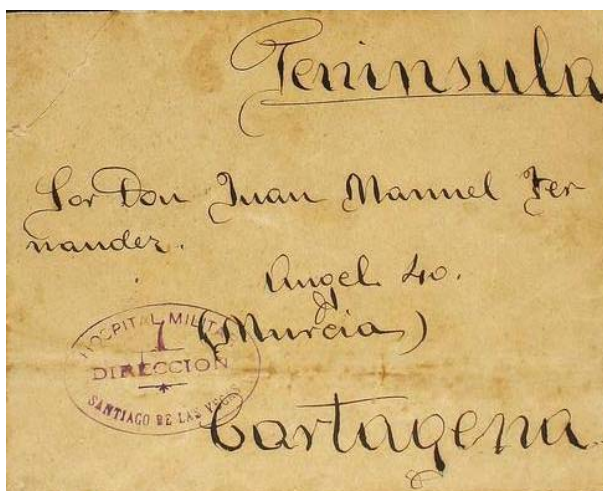 Peninsula
Sor Don Juan Manuel Fer-
nandez.
Angel 40.
(Murcia)
Cartagena
HOSPITAL MILITAR
DIRECCION
SANTIAGO DE LAS VEGAS